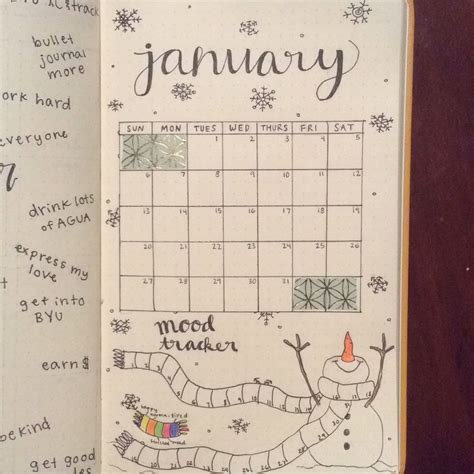 bullet
journal
more
ork hard
everyone
r
drink lots
of AGUA
express my
love
get into
BYU
earn $
be kind
get good
january
SUN MON TUES WED THURS FRI SAT
1 2 3 4 5
6 7 8 9 10 11 12
13 14 15 16 17 18 19
20 21 22 23 24 25 26
27 28 29 30 31
mood
tracker
happy
tired
mad